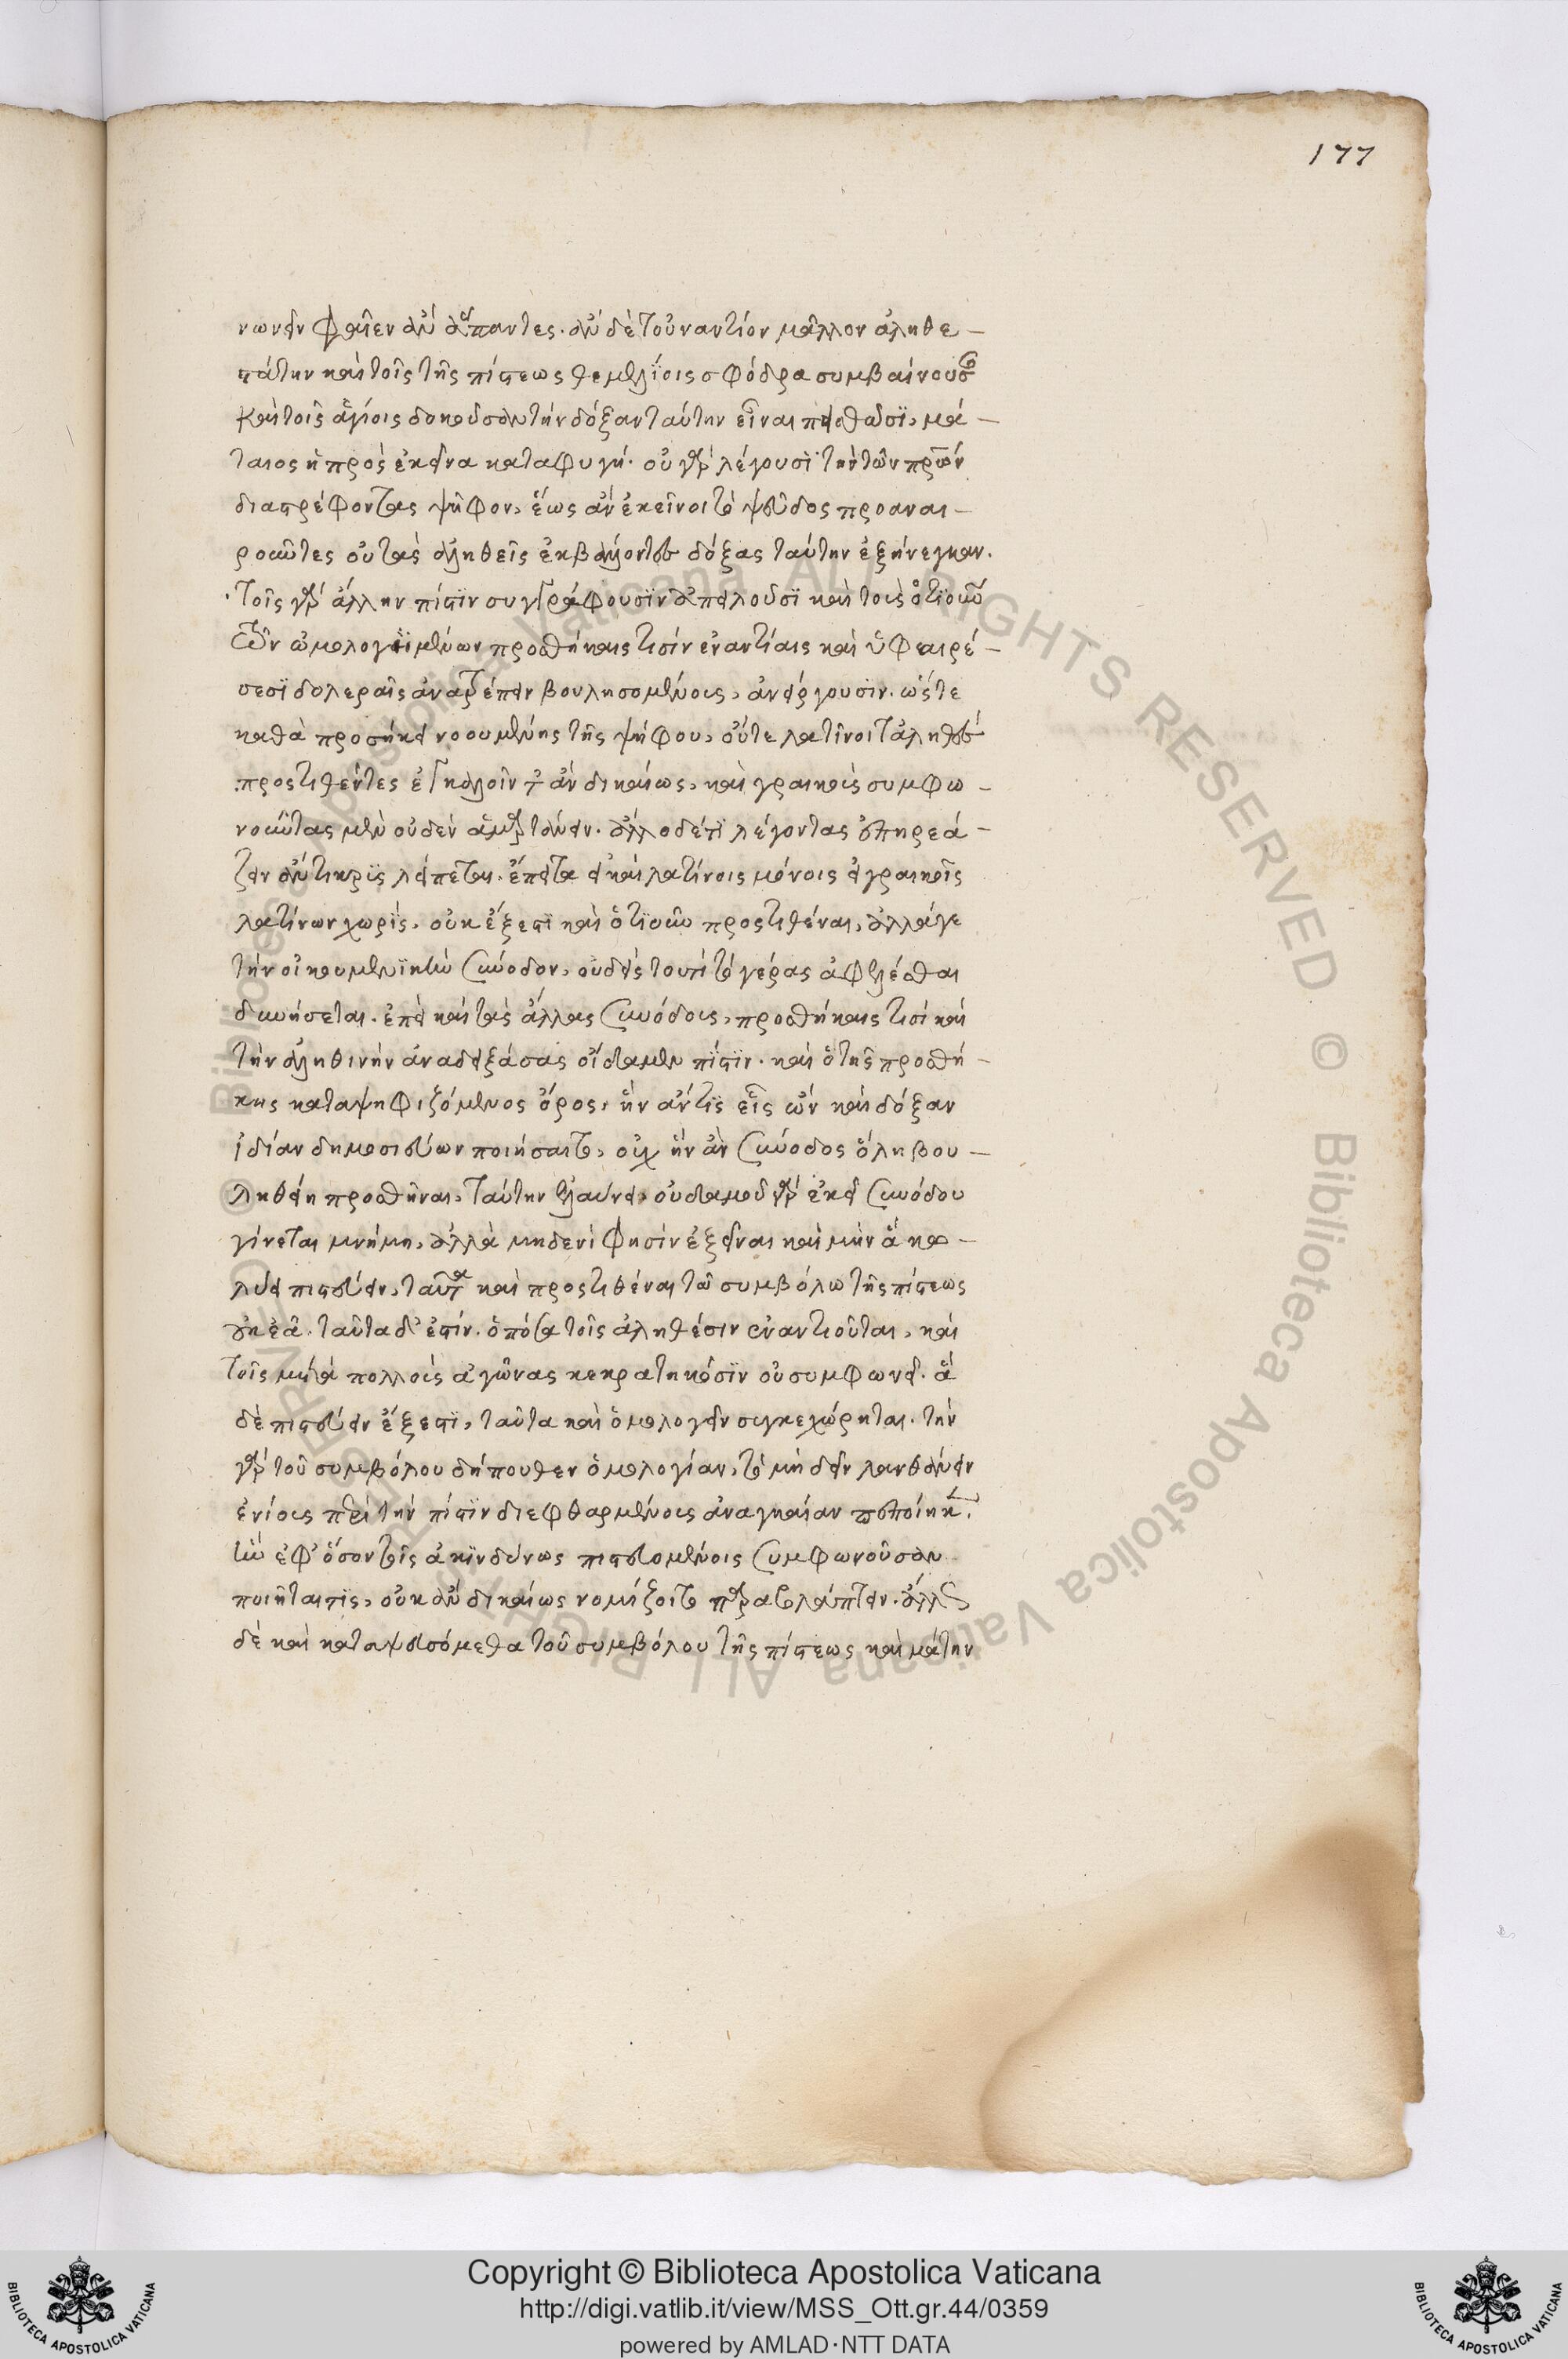 177
νωνεῖν φαῖεν ἂν ἅπαντες. ἂν δὲ τοὐναντίον μᾶλλον ἀληθε–
στάτην καὶ τοῖς τῆς πίστεως θεμελίοις σφόδρα συμβαίνουσαν
καὶ τοῖς ἁγίοις δοκοῦσαν τὴν δόξαν ταύτην εἶναι πεισθῶσι, μά–
ταιος ἡ πρὸς ἐκεῖνα καταφυγή. οὐ γὰρ λέγουσι τὴν τῶν πατέρων
διαστρέφοντες ψῆφον, ἕως ἂν ἐκεῖνοι τὸ ψεῦδος προαναι–
ροῦντες οὐ τὰς ἀληθεῖς ἐκβάλλοντες δόξας ταύτην ἐξήνεγκαν.
τοῖς γὰρ ἄλλην πίστιν συγγράφουσιν ἀπειλοῦσι καὶ τοὺς ὁτιοῦν
τῶν ὡμολογημένων προσθήκαις τισὶν ἐναντίαις καὶ ὑφαιρέ–
σεσι δολεραῖς ἀνατρέπειν βουλησομένους, ἀνείργουσιν. ὥστε
καθὰ προσήκει νοουμένης τῆς ψήφου, οὔτε λατῖνοι τἀληθὲς
προστιθέντες ἐγκαλοῖντ' ἂν δικαίως, καὶ γραικοὺς συμφω–
νοῦντας μὲν οὐδὲν ἁμαρτάνειν. ἄλλο δέ τι λέγοντας ἐπηρεά–
ζειν ἄντικρις λείπεται. ἔπειτα εἰ καὶ λατίνοις μόνοις ἢ γραικοῖς
λατίνων χωρὶς, οὐκ ἔξεστι καὶ ὁτιοῦν προστιθέναι, ἀλλά γε
τὴν οἰκουμενικὴν σύνοδον, οὐδεὶς τουτὶ τὸ γέρας ἀφελέσθαι
δυνήσεται. ἐπεὶ καὶ τὰς ἄλλας συνόδους, προσθήκαις τισὶ καὶ
τὴν ἀληθινὴν ἀναδειξάσας οἴδαμεν πίστιν. καὶ ὁ τῆς προσθή–
κης καταψηφιζόμενος ὅρος, ἣν ἄν τις εἷς ὢν καὶ δόξαν
ἰδίαν δημοσιεύων ποιήσαιτο, οὐχ ἣν ἂν σύνοδος ὅλη βου–
ληθείη προσθῆναι, ταύτην ἐλαύνει, οὐδαμοῦ γὰρ ἐκεῖ συνόδου
γίνεται μνήμη, ἀλλὰ μηδενί φησιν ἐξεῖναι καὶ μὴν ἃ κω–
λύει πιστεύειν, ταῦτα καὶ προστιθέναι τῶ συμβόλω τῆς πίστεως
οὐκ ἐᾶ. ταῦτα δ' ἐστίν. ὁπόσα τοῖς ἀληθέσιν ἐναντιοῦται, καὶ
τοῖς μετὰ πολλοὺς ἀγῶνας κεκρατηκόσιν οὐ συμφωνεῖ. ἃ
δὲ πιστεύειν ἔξεστι, ταῦτα καὶ ὁμολογεῖν συγκεχώρηται. τὴν
γὰρ τοῦ συμβόλου δήπουθεν ὁμολογίαν, τὸ μὴ δεῖν λανθάνειν
ἐνίους περὶ τὴν πίστιν διεφθαρμένους ἀναγκαίαν πεποίηκε.
ἣν ἐφ' ὅσον τοῖς ἀκινδύνως πιστευομένοις συμφωνοῦσαν
ποιῆταί τις, οὐκ ἂν δικαίως νομίζοιτο παραβλάπτειν. ἄλλως
δὲ καὶ καταψευσόμεθα τοῦ συμβόλου τῆς πίστεως καὶ μάτην
Copyright © Biblioteca Apostolica Vaticana
http://digi.vatlib.it/view/MSS_Ott.gr.44/0359
powered by AMLAD·NTT DATA